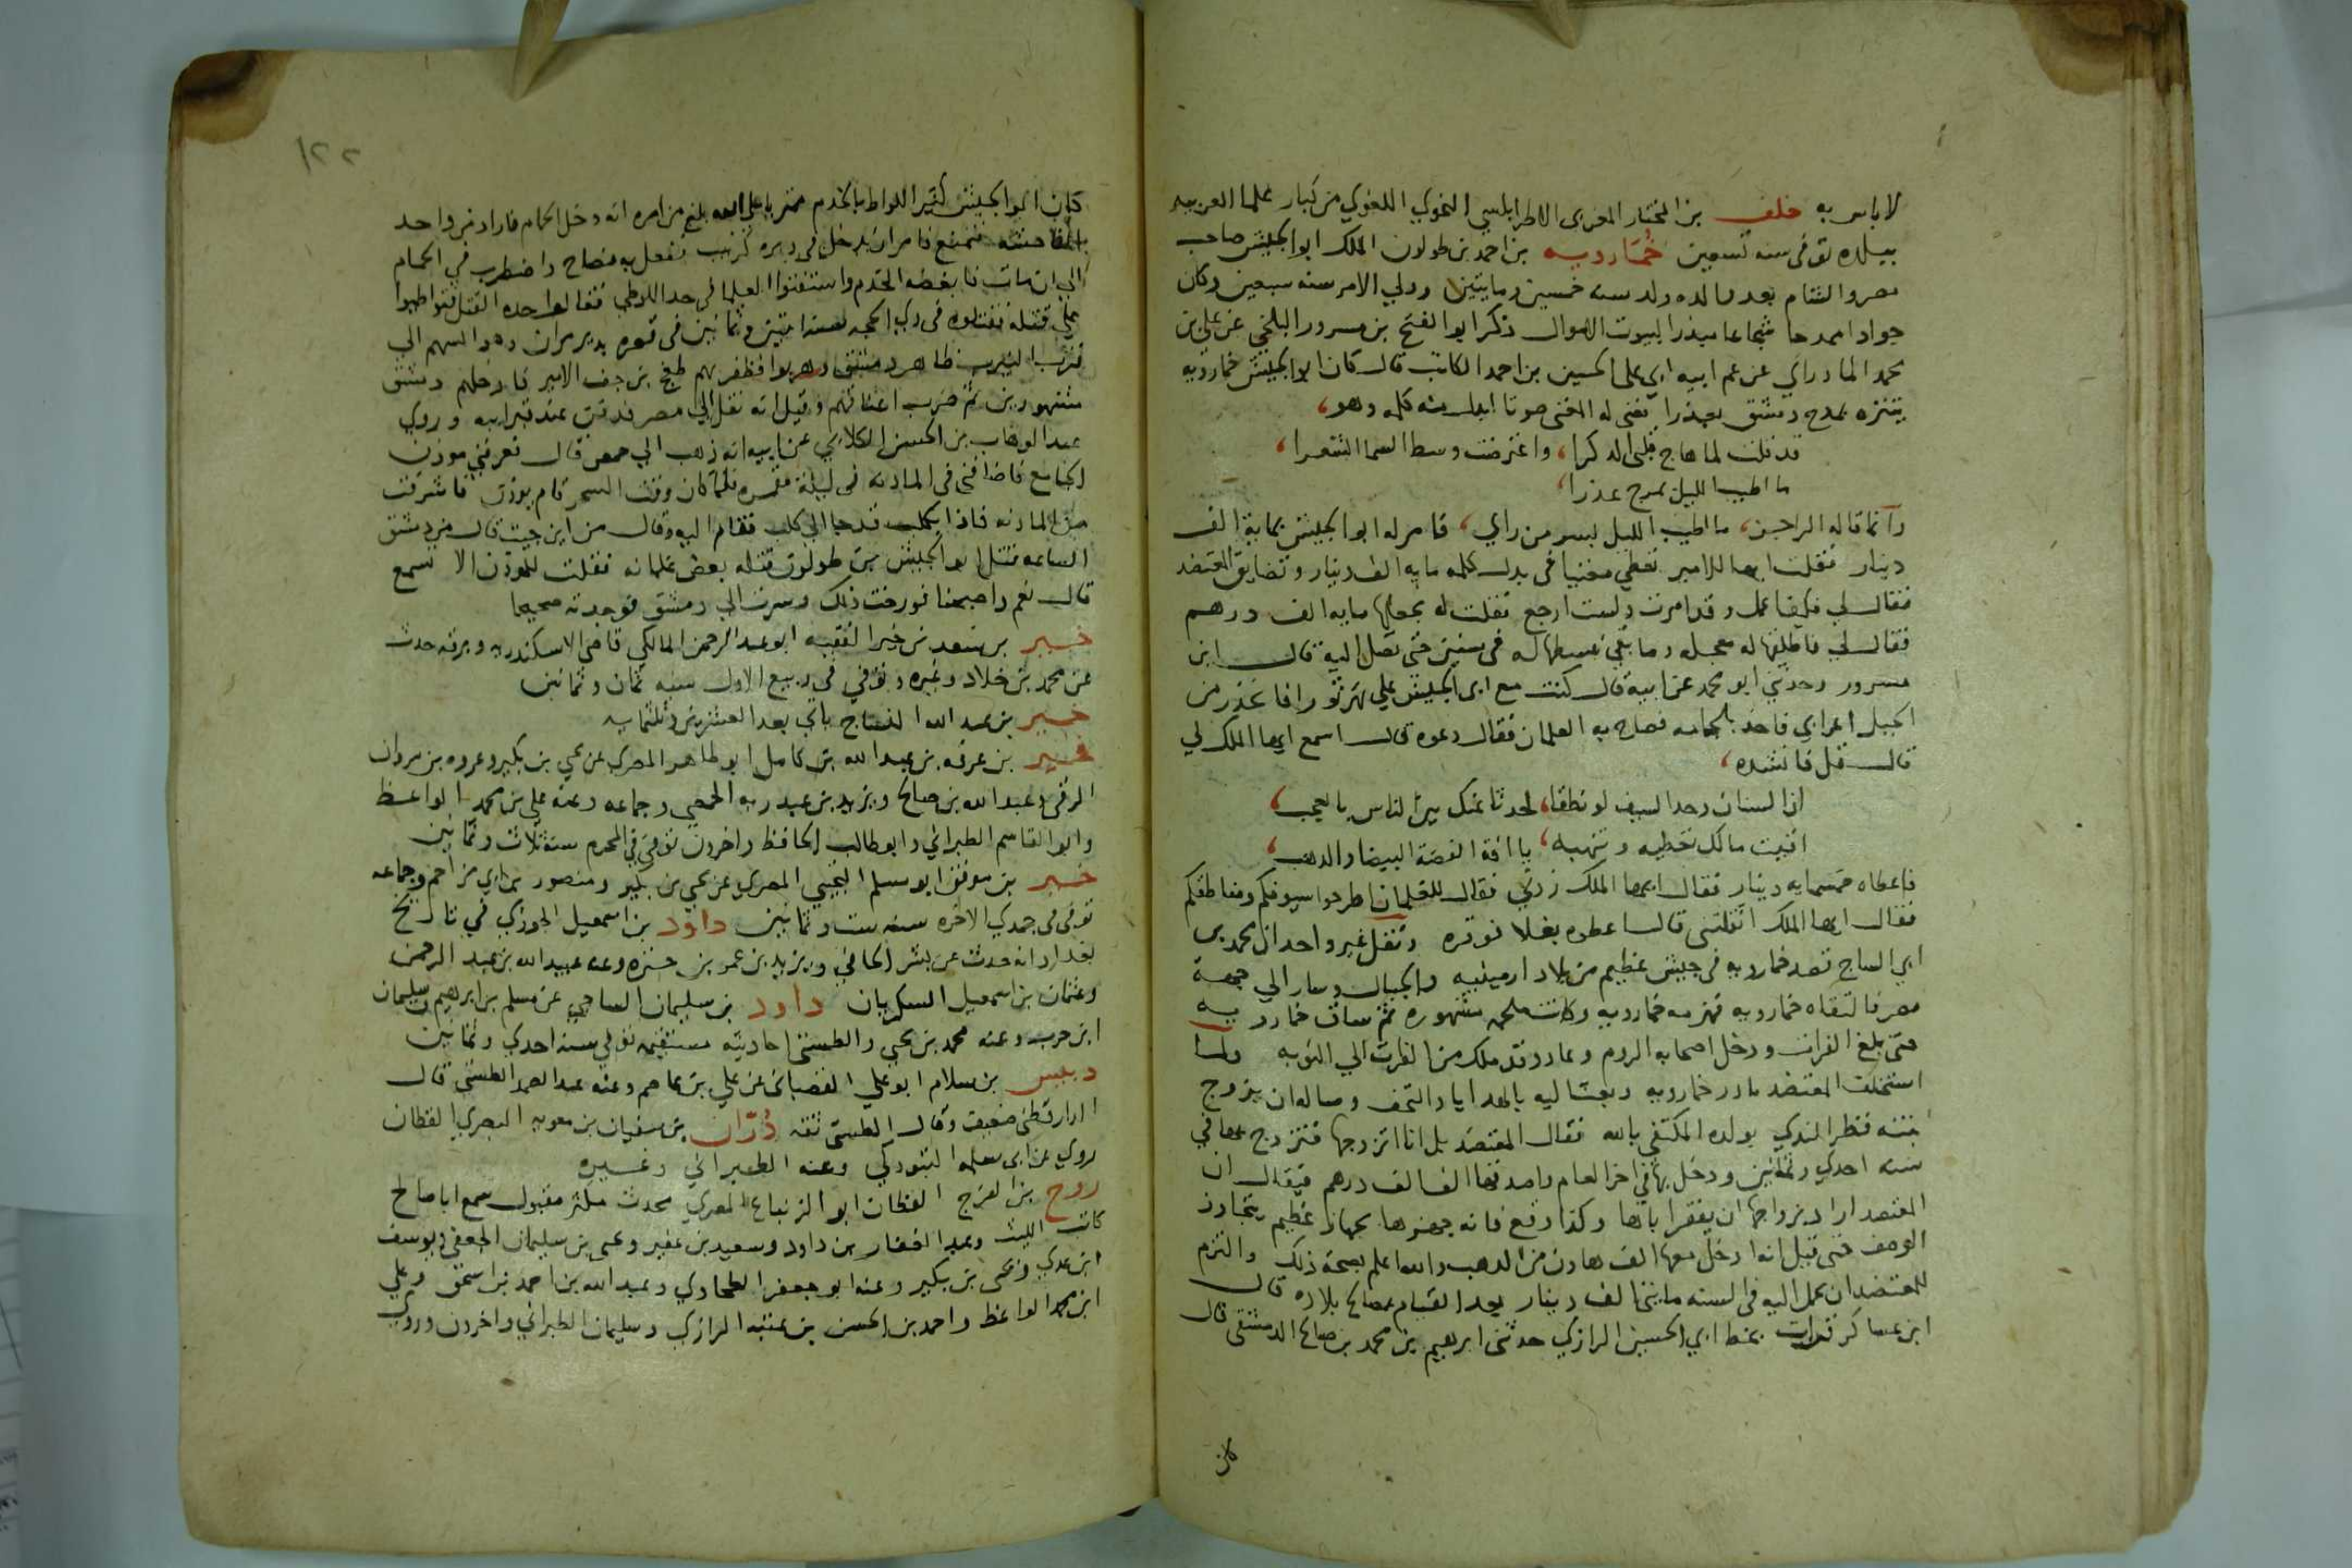 لا باس به خلف بن المختار المغربى الاطرابلسي النحوي اللغوي من كبار علما العربيه
ببلده توفى سنه تسعين خُمَارويه بن احمد بن طولون الملك ابو الجيش صاحب
مصر والشام بعد والده ولد سنه خمسين ومايتين وولي الامر سنه سبعين وكان
جوادا ممدحا شجاعا مبذرا لبيوت الاموال ذكر ابو الفتح بن مسرور البلخي عن علي بن
محمد المادرائي عن عم ابيه ابي على الحسين بن احمد الكاتب قال كان ابو الجيش خمارويه
يتنزه بمرج دمشق بعذرا فغنى له المغنى صوتا ابدل منه كلمه وهو،
قد قلت لما هاج قلبى الذكرا، واعترضت وسط السما الشعرا،
ما اطيب الليل بمرج عذرا،
وانما قاله الراجز، ما اطيب الليل بسر من راي، فامر له ابو الجيش بماية الف
دينار فقلت ايها الامير تعطي مغنيا فى بدل كلمه مايه الف دينار وتضايق المعتضد
فقال لي فكيف اعمل وقد امرت ولست ارجع فقلت له تجعلها مايه الف درهم
فقال لي فاطلقها له معجله وما بقي نبسطها له فى سنين حتى تصل اليه قال ابن
مسرور وحدثني ابو محمد عن ابيه قال كنت مع ابى الجيش علي نهر ثورا فانحدر من
الجبل اعرابي فاخذ بلجامه فصاح به الغلمان فقال دعوه قال اسمع ايها الملك لي
قال قل فانشده،
ان السنان وحد السيف لو نطقا، لحدثا عنك بين الناس بالعجب،
افنيت مالك تعطيه وتنهبه، يا افة الفضة البيضا والذهب،
فاعطاه خمسمايه دينار فقال ايها الملك زدني فقال للغلمان اطرحوا سيوفكم ومناطقكم
فقال ايها الملك اثقلتنى قال اعطوه بغلا نوقره ونقل غير واحد ان محمد بن
ابي الساج قصد خمارويه فى جيش عظيم من بلاد ارمينيه والجبال وسار الي جهة
مصر فالتقاه خمارويه فهزمه خمارويه وكانت ملحمه مشهوره ثم ساق خمارويه
حتى بلغ الفرات ودخل اصحابه الروم وعاد وقد ملك من الفرات الي النوبه ولما
استخلف المعتضد بادر خمارويه وبعث اليه بالهدايا والتحف وساله ان يزوج
ابنته قطر الندي بولده المكتفي بالله فقال المعتضد بل انا اتزوجها فتزوج بها في
سنه احدي وثمانين ودخل بها فى اخر العام واصدقها الف الف درهم فيقال ان
المعتضد اراد بزواجها ان يفقر اباها وكذا وقع فانه جهزها بجهاز عظيم يتجاوز
الوصف حتى قيل انه ادخل معها الف هاون من الذهب والله اعلم بصحة ذلك والتزم
للمعتضد ان يحمل اليه فى السنه مايتى الف دينار بعد القيام بمصالح بلاده قال
ابن عساكر قرات بخط ابي الحسين الرازي حدثنى ابرهيم بن محمد بن صالح الدمشقى قال
كان
١٢٢
كان ابو الجيش كثير اللواط بالخدم بلغ من امره انه دخل الحمام فاراد من واحد
الفاحشه فتمنع فامر ان يدخل في دبره كرنيب ففعل به فصاح واضطرب في الحمام
الي ان مات فابغضه الخدم واستفتوا العلما فى حد اللوطي فقالوا حده القتل فتواطوا
علي قتله فقتلوه فى ذي الحجه سنه اثنين وثمانين فى قصره بدير مران
قرب النيرب ظاهر دمشق وهربوا فظفر بهم طغج بن جف الامير فادخلهم دمشق
مشهورين ثم ضرب اعناقهم وقيل انه نقل الي مصر فدفن عند قبر ابيه وروي
عبد الوهاب بن الحسن الكلابي عن ابيه انه ذهب الي حمص قال فعرفني موذن
الجامع فاضافنى فى المادنه فى ليلة مقمره فلما كان وقت السحر قام يوذن فاشرفت
من المادنه فاذا بكلب قد جا الي كلب فقام اليه وقال من اين جيت قال من دمشق
الساعه قتل ابو الجيش بن طولون قتله بعض غلمانه فقلت للموذن الا تسمع
قال نعم واصبحنا فورخت ذلك وسرت الي دمشق فوجدته صحيحا
خير بن سعد بن خير الفقيه ابو عبد الرحمن المالكي قاضي الاسكندريه وبرقه حدث
عن محمد بن خلاد وغيره وتوفي فى ربيع الاول سنه ثمان وثمانين
خير بن عبد الله النساج ياتي بعد العشرين وثلثمايه
خير بن عرفه بن عبد الله بن كامل ابو طاهر المصري عن يحيى بن بكير وعروه بن مروان
الرقي وعبد الله بن صالح ويزيد بن عبد ربه الحمصي وجماعه وعنه علي بن محمد الواعظ
وابو القاسم الطبراني وابو طالب الحافظ واخرون توفي في المحرم سنة ثلاث وثمانين
خير بن موفق ابو مسلم التجيبي المصري عن يحيي بن بكير ومنصور بن ابي مزاحم وجماعه
توفى فى جمدي الاخره سنه ست وثمانين داود بن اسمعيل الجوزي في تاريخ
بغداد انه حدث عن بشر الحافي ويزيد بن عمرو بن حنزه وعنه عبيد الله بن عبد الرحمن
وعثمان بن اسمعيل السكريان داود بن سليمان الساجي عن مسلم بن ابرهيم وسليمان
ابن حرب وعنه محمد بن يحيي والطستى احاديثه مستقيمه توفي سنه احدي وثمانين
دبيس بن سلام ابو علي القصبانى عن علي بن عاصم وعنه عبد الصمد الطستى قال
الدارقطنى ضعيف وقال الطستى ثقه دُرّان بن سفيان بن معويه البصري القطان
روي عن ابى سلمه التبوذكي وعنه الطبراني وغيره
روح بن الفرج القطان ابو الزنباع المصري محدث مكثر مقبول سمع ابا صالح
كاتب الليث وعبد الغفار بن داود وسعيد بن عفير ويحيى بن سليمان الجعفي ويوسف
ابن عدي ويحيى بن بكير وعنه ابو جعفر الطحاوي وعبد الله بن احمد بن اسحق وعلي
ابن محمد الواعظ واحمد بن الحسن بن عتبه الرازي وسليمان الطبراني واخرون وروي